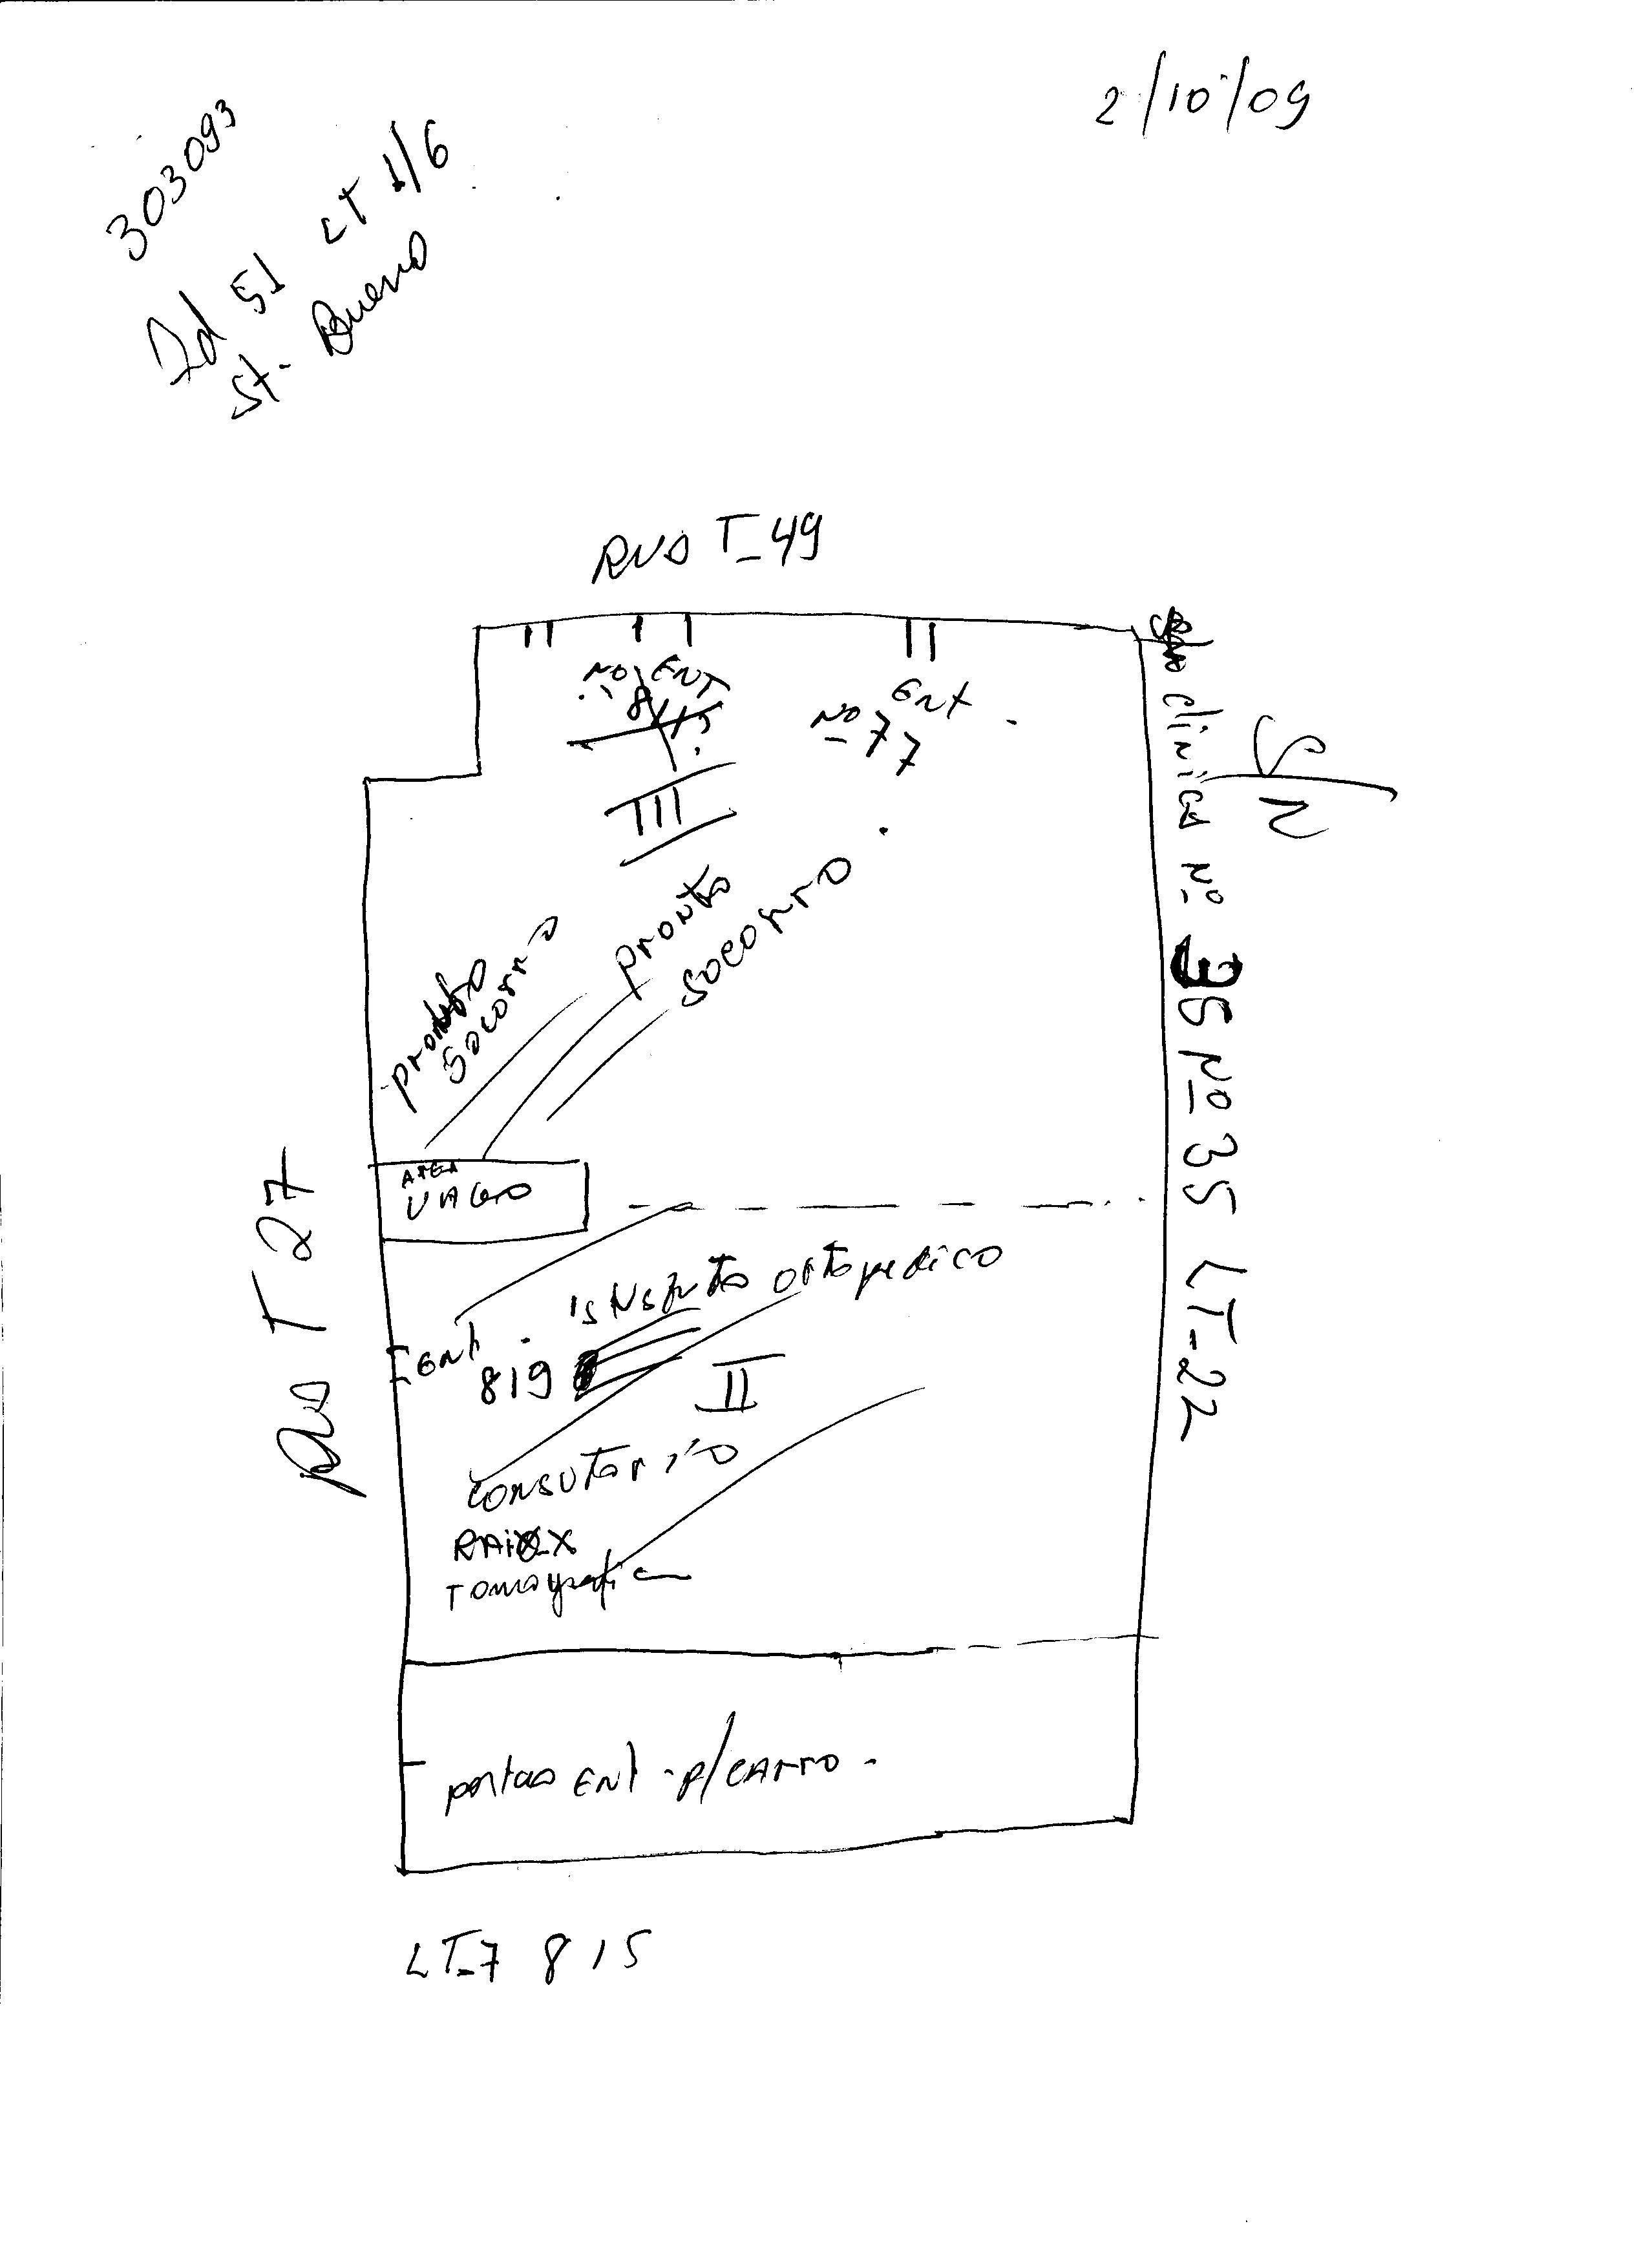 2/10/09
303093
Qd 51 LT 1/6
St. Bueno
RUA T-49
Nº ENT
ENT
Nº 77
III
pronto
socorro
pronto
socorro
AREA
VAGO
RUA T 27
clinica Nº 36 Nº 35 LT-22
S/N
istituto ortopedico
ENT.
819
II
consutorio
RAIO X
Tomografia
portao ENT - p/ CARRO -
LT-7 815